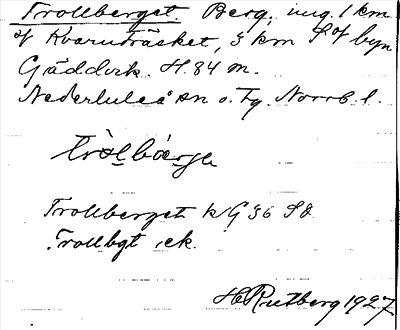 Trollberget Berg, ung. 1 km
of Kvarnträsket, 3 km S of byn
Gäddvik. H. 84 m.
Nederluleå sn o. tg. Norrb. l.
Trollberget kG 36 Sd.
Trollbgt ek.
H Rutberg 1927